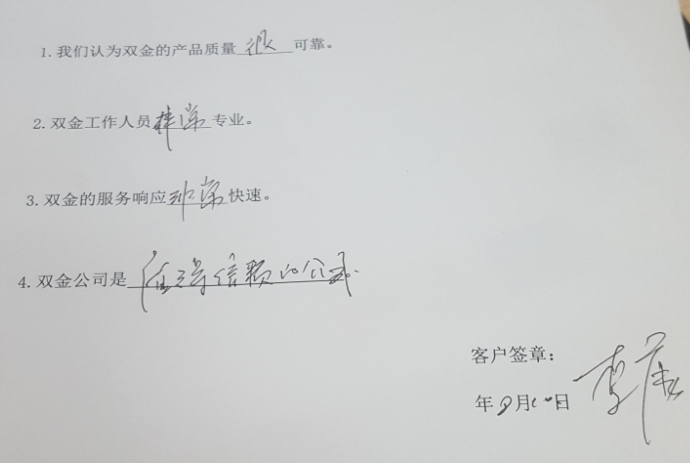 1. 我们认为双金的产品质量 很 可靠。
2. 双金工作人员 非常 专业。
3. 双金的服务响应 非常 快速。
4. 双金公司是 值得信赖的公司.
客户签章:
年 月 日 李